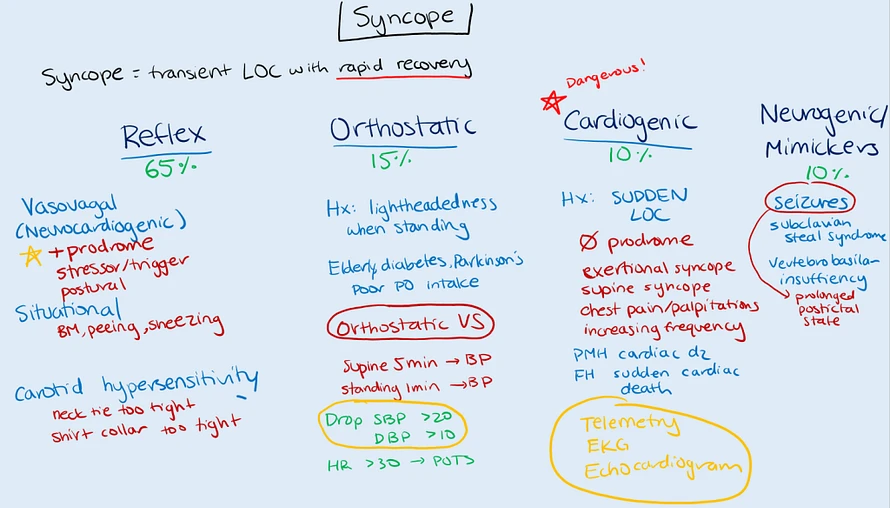 Syncope
Syncope = transient LOC with rapid recovery
Reflex
65%
Vasovagal
(Neurocardiogenic)
+ prodrome
stressor/trigger
postural
Situational
BM, peeing, sneezing
Carotid hypersensitivity
neck tie too tight
shirt collar too tight
Orthostatic
15%
Hx: lightheadedness
when standing
Elderly, diabetes, Parkinson's
Poor PO intake
Orthostatic VS
Supine 5min → BP
standing 1min → BP
Drop SBP >20
DBP >10
HR >30 → POTS
Dangerous!
Cardiogenic
10%
Hx: SUDDEN
LOC
Ø prodrome
exertional syncope
supine syncope
chest pain/palpitations
increasing frequency
PMH cardiac dz
FH sudden cardiac
death
Telemetry
EKG
Echocardiogram
Neurogenic/
Mimickers
10%
seizures
subclavian
steal syndrome
vertebrobasilar
insuffiency
prolonged
postictal
state